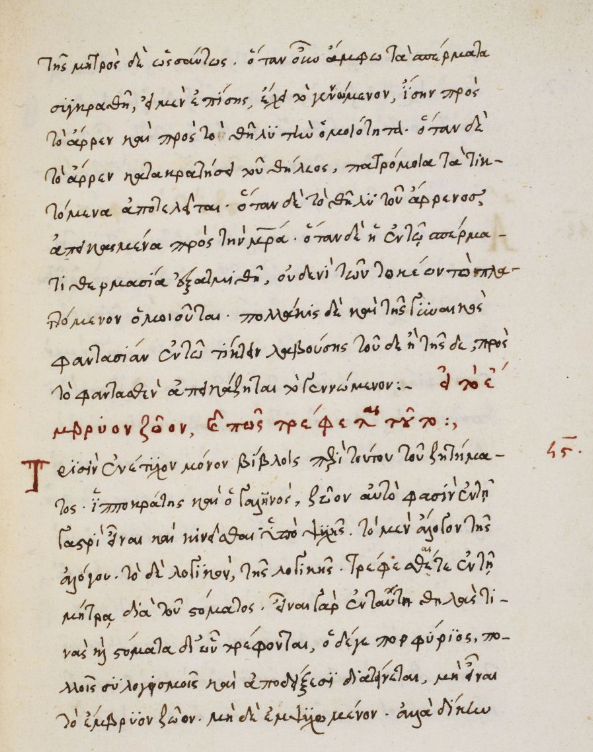 τῆς μητρὸς δὲ ὡσαύτως. ὅταν οὖν ἄμφω τὰ σπέρματα
συγκραθῆ, εἰ μὲν ἐπίσης, ἕλκει τὸ γεννώμενον, ἴσην πρὸς
τὸ ἄρρεν καὶ πρὸς τὸ θῆλυ τὴν ὁμοιότητα. ὅταν δὲ
τὸ ἄρρεν κατακρατήσει τοῦ θήλεος, πατρόμοια τὰ τικ-
τόμενα ἀποτελεῖται. ὅταν δὲ τὸ θῆλυ τοῦ ἄρρενος,
ἀπεικασμένα πρὸς τὴν μρα. ὅταν δὲ ἡ ἐν τῶ σπέρμα-
τι θερμασία ἐξατμισθῆ, οὐδενὶ τῶν τοκέων τὸ πλα-
τόμενον ὁμοιοῦται. πολλάκις δὲ καὶ τῆς γυναικὸς
φαντασίαν ἐν τῶ τίκτειν λαβούσης τοῦδε ἢ τῆσδε, πρὸς
τὸ φαντασθὲν ἀπεικάζεται τὸ γεννώμενον:- εἰ τὸ ἔ
μβρύον ζῶον, καὶ πῶς τρέφεται:
Τρισὶν ἐνέτυχον μόνον βίβλοις περὶ τούτου τοῦ ζητήμα- ϟς.
τος. ἱπποκράτης καὶ ὁ γαληνὸς, ζῶον αὐτὸ φασὶν ἐν τῆ
γαστρὶ εἶναι καὶ κινεῖσθαι ὑπὸ ψυχῆς. τὸ μὲν ἄλογον τῆς
ἀλόγου. τὸ δὲ λογικὸν, τῆς λογικῆς. τρέφεσθαί τε ἐν τῆ
μήτρα διὰ τοῦ στόματος. εἶναι γὰρ ἐν ταύτη θηλάς τι-
νας ἢ στόματα δι' ὧν τρέφονται, ὁ δέ γε πορφύριος, πο-
λλοῖς συλλογισμοῖς καὶ ἀποδείξεσι διατείνεται, μὴ εἶναι
τὸ ἔμβρυον ζῶον. μηδὲ ἐμψυχωμένον. ἀλλὰ δίκην